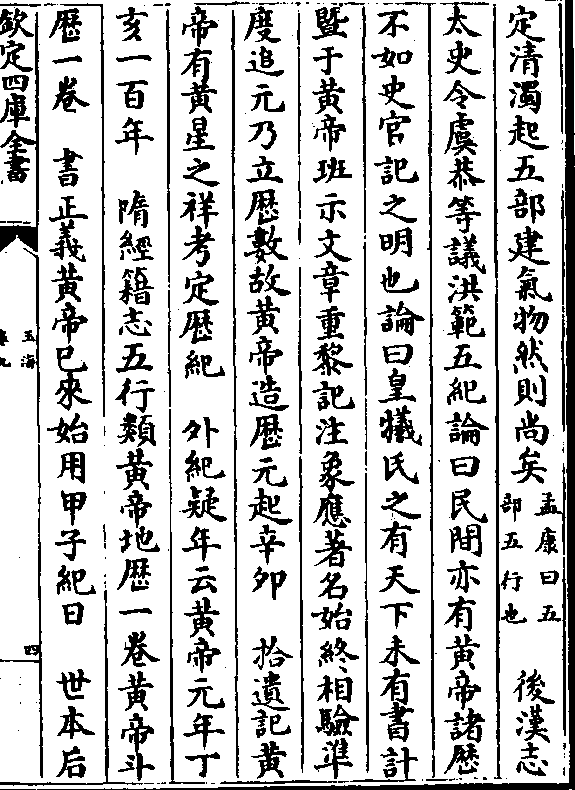 定清濁起五部建氣物然則尚矣孟康曰五部五行也　後漢志
太史令虞恭等議洪範五紀論曰民間亦有黄帝諸歴
不如史官記之明也論曰皇犧氏之有天下未有書計
暨于黄帝班示文章重黎記注象應著名始終相驗凖
度追元乃立歴數故黄帝造歴元起辛卯　拾遺記黄
帝有黄星之祥考定歴紀　外紀疑年云黄帝元年丁
亥一百年　隋經籍志五行類黄帝地歴一卷黄帝斗
歴一卷　書正義黄帝已來始用甲子紀日　世本后
欽定四庫全書
玉海
卷九
四